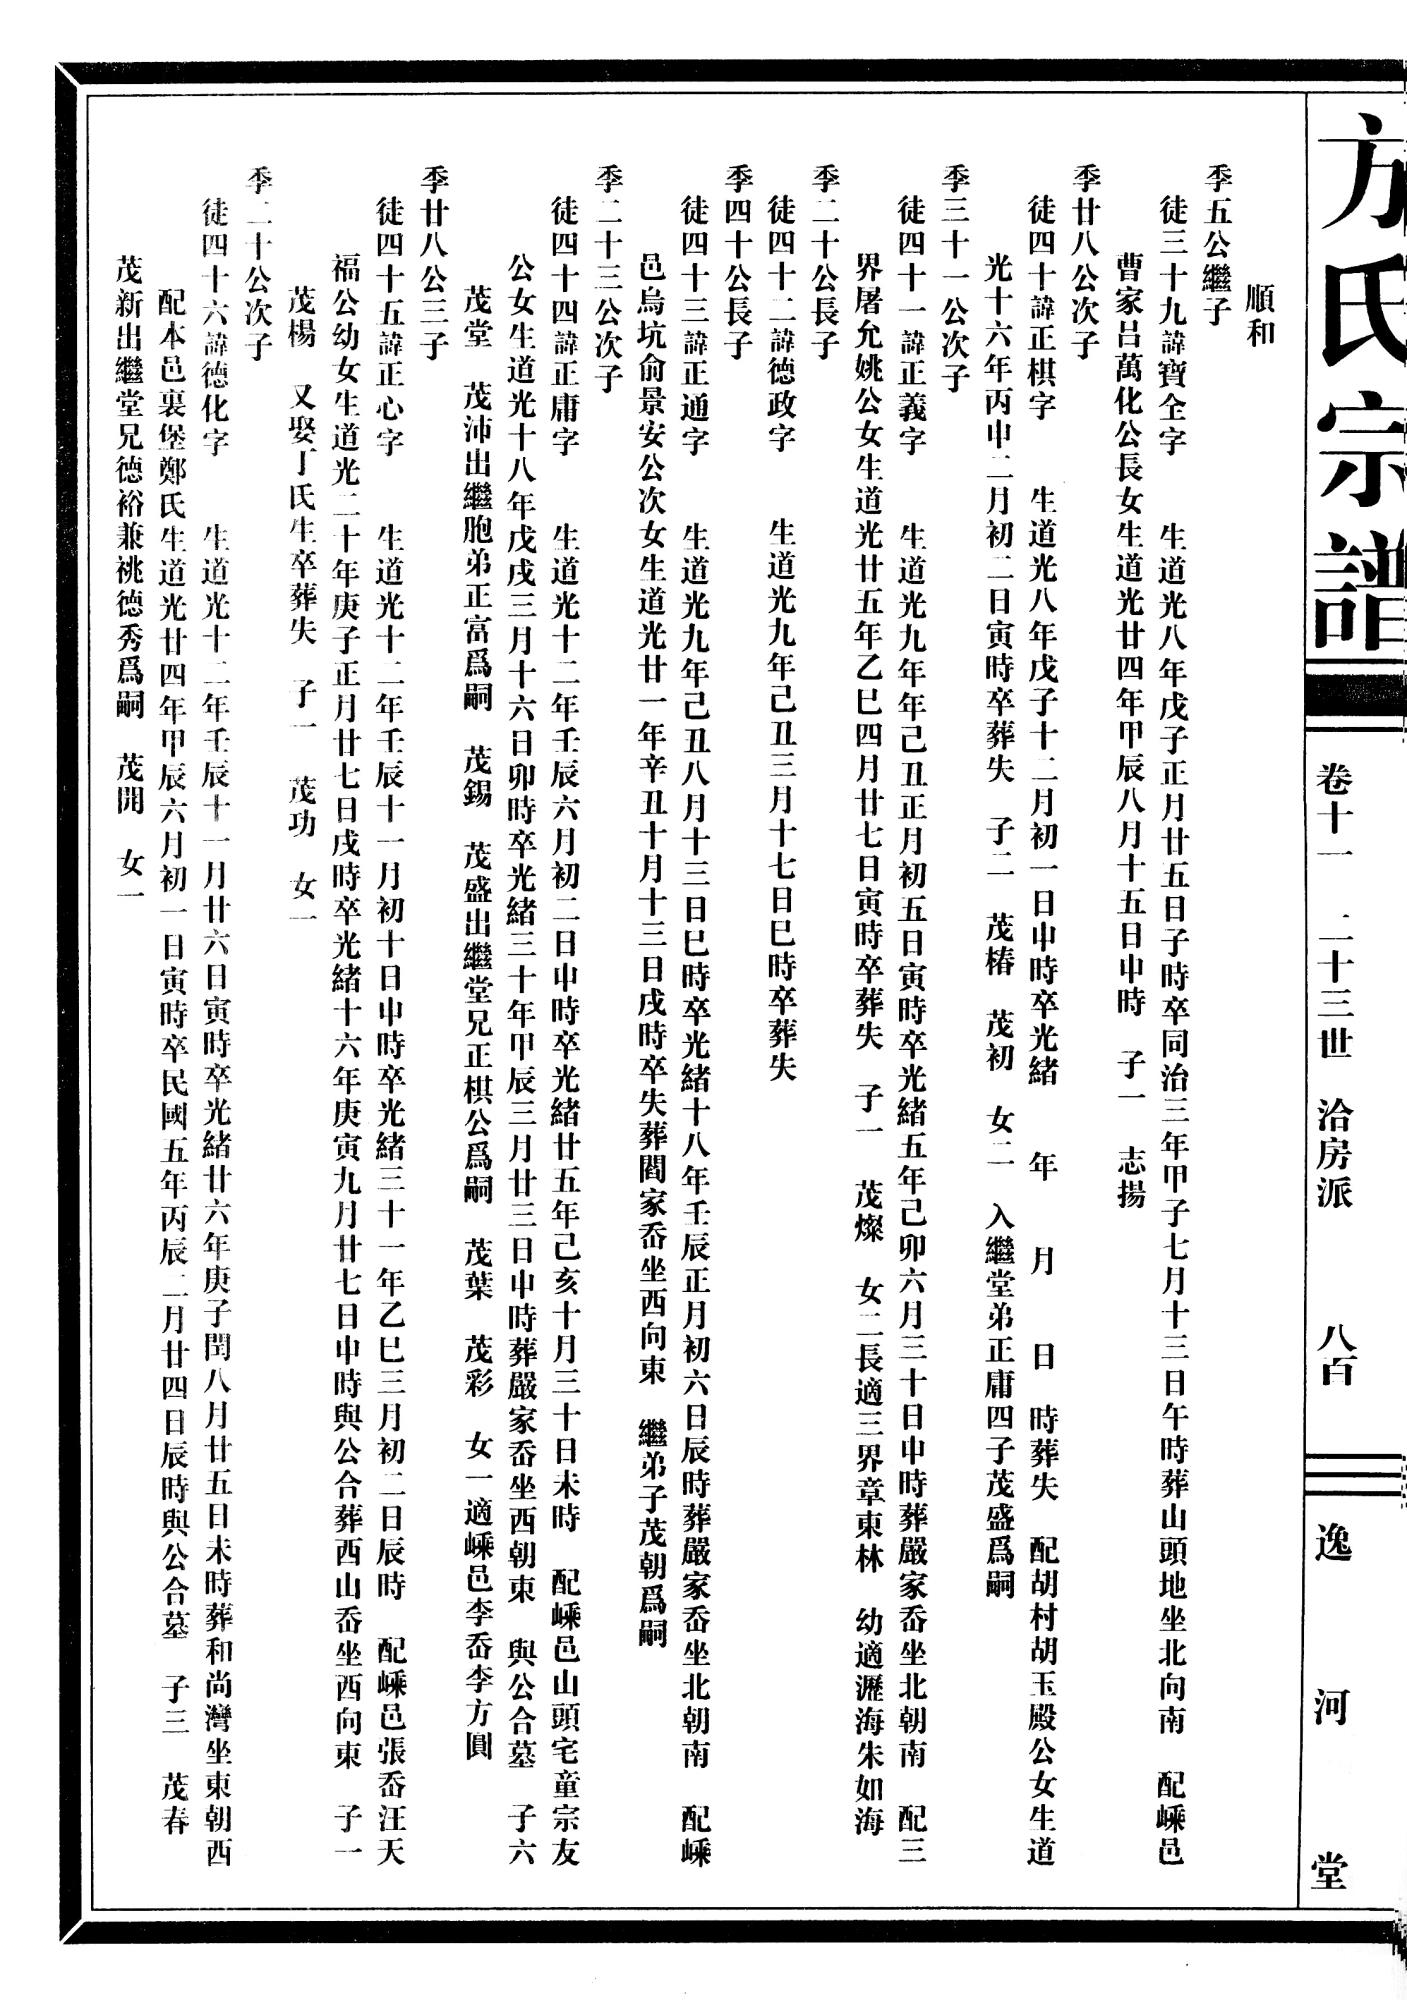 方氏宗譜
卷十一　二十三世　洽房派　八百
逸河堂
順和
季五公繼子
徒三十九諱寶全字　生道光八年戊子正月廿五日子時卒同治三年甲子七月十三日午時葬山頭地坐北向南　配嵊邑
曹家呂萬化公長女生道光廿四年甲辰八月十五日申時　子一　志揚
季廿八公次子
徒四十諱正棋字　生道光八年戊子十二月初一日申時卒光緒　年　月　日　時葬失　配胡村胡玉殿公女生道
光十六年丙申二月初二日寅時卒葬失　子二　茂椿　茂初　女二　入繼堂弟正庸四子茂盛爲嗣
季三十一公次子
徒四十一諱正義字　生道光九年年己丑正月初五日寅時卒光緒五年己卯六月三十日申時葬嚴家岙坐北朝南　配三
界屠允姚公女生道光廿五年乙巳四月廿七日寅時卒葬失　子一　茂燦　女二長適三界章東林　幼適瀝海朱如海
季二十公長子
徒四十二諱德政字　生道光九年己丑三月十七日巳時卒葬失
季四十公長子
徒四十三諱正通字　生道光九年己丑八月十三日巳時卒光緒十八年壬辰正月初六日辰時葬嚴家岙坐北朝南　配嵊
邑烏坑俞景安公次女生道光廿一年辛丑十月十三日戌時卒失葬閻家岙坐西向東　繼弟子茂朝爲嗣
季二十三公次子
徒四十四諱正庸字　生道光十二年壬辰六月初二日申時卒光緒廿五年己亥十月三十日未時　配嵊邑山頭宅童宗友
公女生道光十八年戊戌三月十六日卯時卒光緒三十年甲辰三月廿三日申時葬嚴家岙坐西朝東　與公合墓　子六
茂堂　茂沛出繼胞弟正富爲嗣　茂錫　茂盛出繼堂兄正棋公爲嗣　茂葉　茂彩　女一適嵊邑李岙李方圓
季廿八公三子
徒四十五諱正心字　生道光十二年壬辰十一月初十日申時卒光緒三十一年乙巳三月初二日辰時　配嵊邑張岙汪天
福公幼女生道光二十年庚子正月廿七日戌時卒光緒十六年庚寅九月廿七日申時與公合葬西山岙坐西向東　子一
茂楊　又娶丁氏生卒葬失　子一　茂功　女一
季二十公次子
徒四十六諱德化字　生道光十二年壬辰十一月廿六日寅時卒光緒廿六年庚子閏八月廿五日未時葬和尚灣坐東朝西
配本邑裏堡鄭氏生道光廿四年甲辰六月初一日寅時卒民國五年丙辰二月廿四日辰時與公合墓　子三　茂春
茂新出繼堂兄德裕兼祧德秀爲嗣　茂開　女一